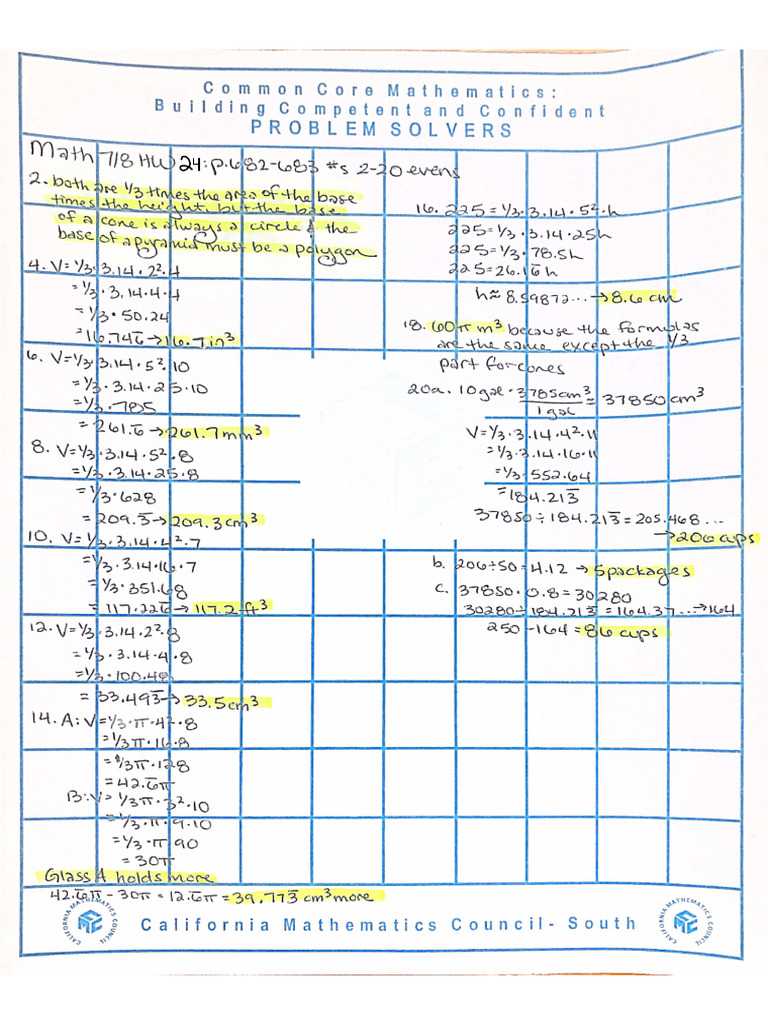 Common Core Mathematics:
Building Competent and Confident
PROBLEM SOLVERS
Math 7/8 HW 24: p.682-683 #s 2-20 evens
2. both are 1/3 times the area of the base
times the height, but the base
of a cone is always a circle & the
base of a pyramid must be a polygon
4. V=1/3·3.14·2²·4
=1/3·3.14·4·4
=1/3·50.24
=16.746̅→16.7in³
6. V=1/3·3.14·5²·10
=1/3·3.14·25·10
=1/3·785
=261.6̅→261.7mm³
8. V=1/3·3.14·5²·8
=1/3·3.14·25·8
=1/3·628
=209.3̅→209.3cm³
10. V=1/3·3.14·4²·7
=1/3·3.14·16·7
=1/3·351.68
=117.226̅→117.2ft³
12. V=1/3·3.14·2²·8
=1/3·3.14·4·8
=1/3·100.48
=33.493̅→33.5cm³
14. A: V=1/3·π·4²·8
=1/3π·16·8
=1/3π·128
=42.6̅π
B: V=1/3π·3²·10
=1/3·π·9·10
=1/3·π90
=30π
Glass A holds more
42.6̅π-30π=12.6̅π=39.773̅ cm³ more
16. 225=1/3·3.14·5²·h
225=1/3·3.14·25h
225=1/3·78.5h
225=26.16̅h
h≈8.59872...→8.6cm
18. 60π m³ because the formulas
are the same except the 1/3
part for cones
20a. 10gal·3785cm³/1gal=37850cm³
V=1/3·3.14·4²·11
=1/3·3.14·16·11
=1/3·552.64
=184.213̅
37850÷184.213̅=205.468...
→206 cups
b. 206÷50=4.12→5packages
c. 37850·0.8=30280
30280÷184.213̅=164.37...→164
250-164=86 cups
CALIFORNIA MATHEMATICS COUNCIL
California Mathematics Council- South
CALIFORNIA MATHEMATICS COUNCIL